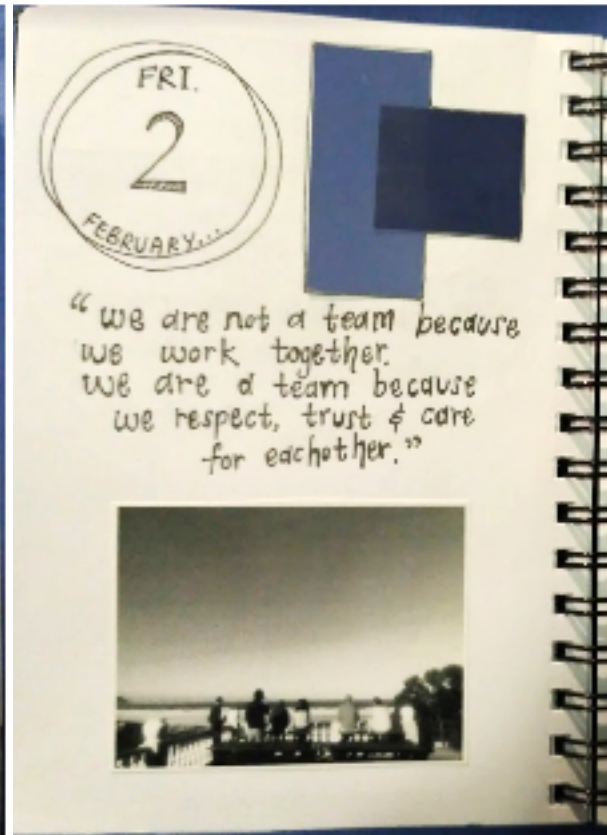 FRI.
2
FEBRUARY...
“we are not a team because
we work together.
we are a team because
we respect, trust & care
for eachother.”